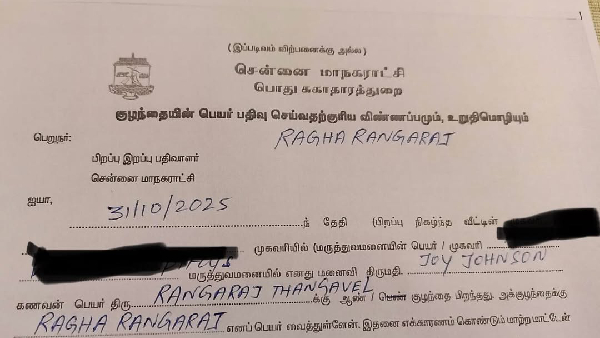 1
(இப்படிவம் விற்பனைக்கு அல்ல)
சென்னை மாநகராட்சி
பொது சுகாதாரத்துறை
குழந்தையின் பெயர் பதிவு செய்வதற்குரிய விண்ணப்பமும், உறுதிமொழியும்
பெறுநர்: RAGHA RANGARAJ
பிறப்பு இறப்பு பதிவாளர்
சென்னை மாநகராட்சி
ஐயா,
31/10/2025 ந் தேதி (பிறப்பு நிகழ்ந்த வீட்டின்
முகவரியில் (மருத்துவமனையின் பெயர் / முகவரி
மருத்துவமனையில் எனது மனைவி திருமதி. JOY JOHNSON
கணவன் பெயர் திரு. RANGARAJ THANGAVEL க்கு ஆண் / பெண் குழந்தை பிறந்தது. அக்குழந்தைக்கு
RAGHA RANGARAJ எனப் பெயர் வைத்துள்ளேன். இதனை எக்காரணம் கொண்டும் மாற்றமாட்டேன்